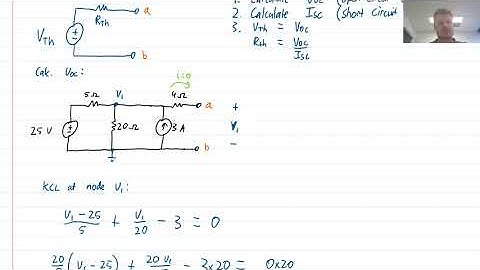 1. Calculate Voc (open circuit
2. Calculate Isc (short circuit
3. VTh = Voc
Rth = Voc/Isc
RTh
a
VTh
b
Calc. Voc:
i=0
5Ω V1 4Ω a
+
25 V 20Ω 3 A V1
b -
KCL at node V1:
V1 - 25/5 + V1/20 - 3 = 0
20/5 (V1 - 25) + 20 V1 - 3×20 = 0×20